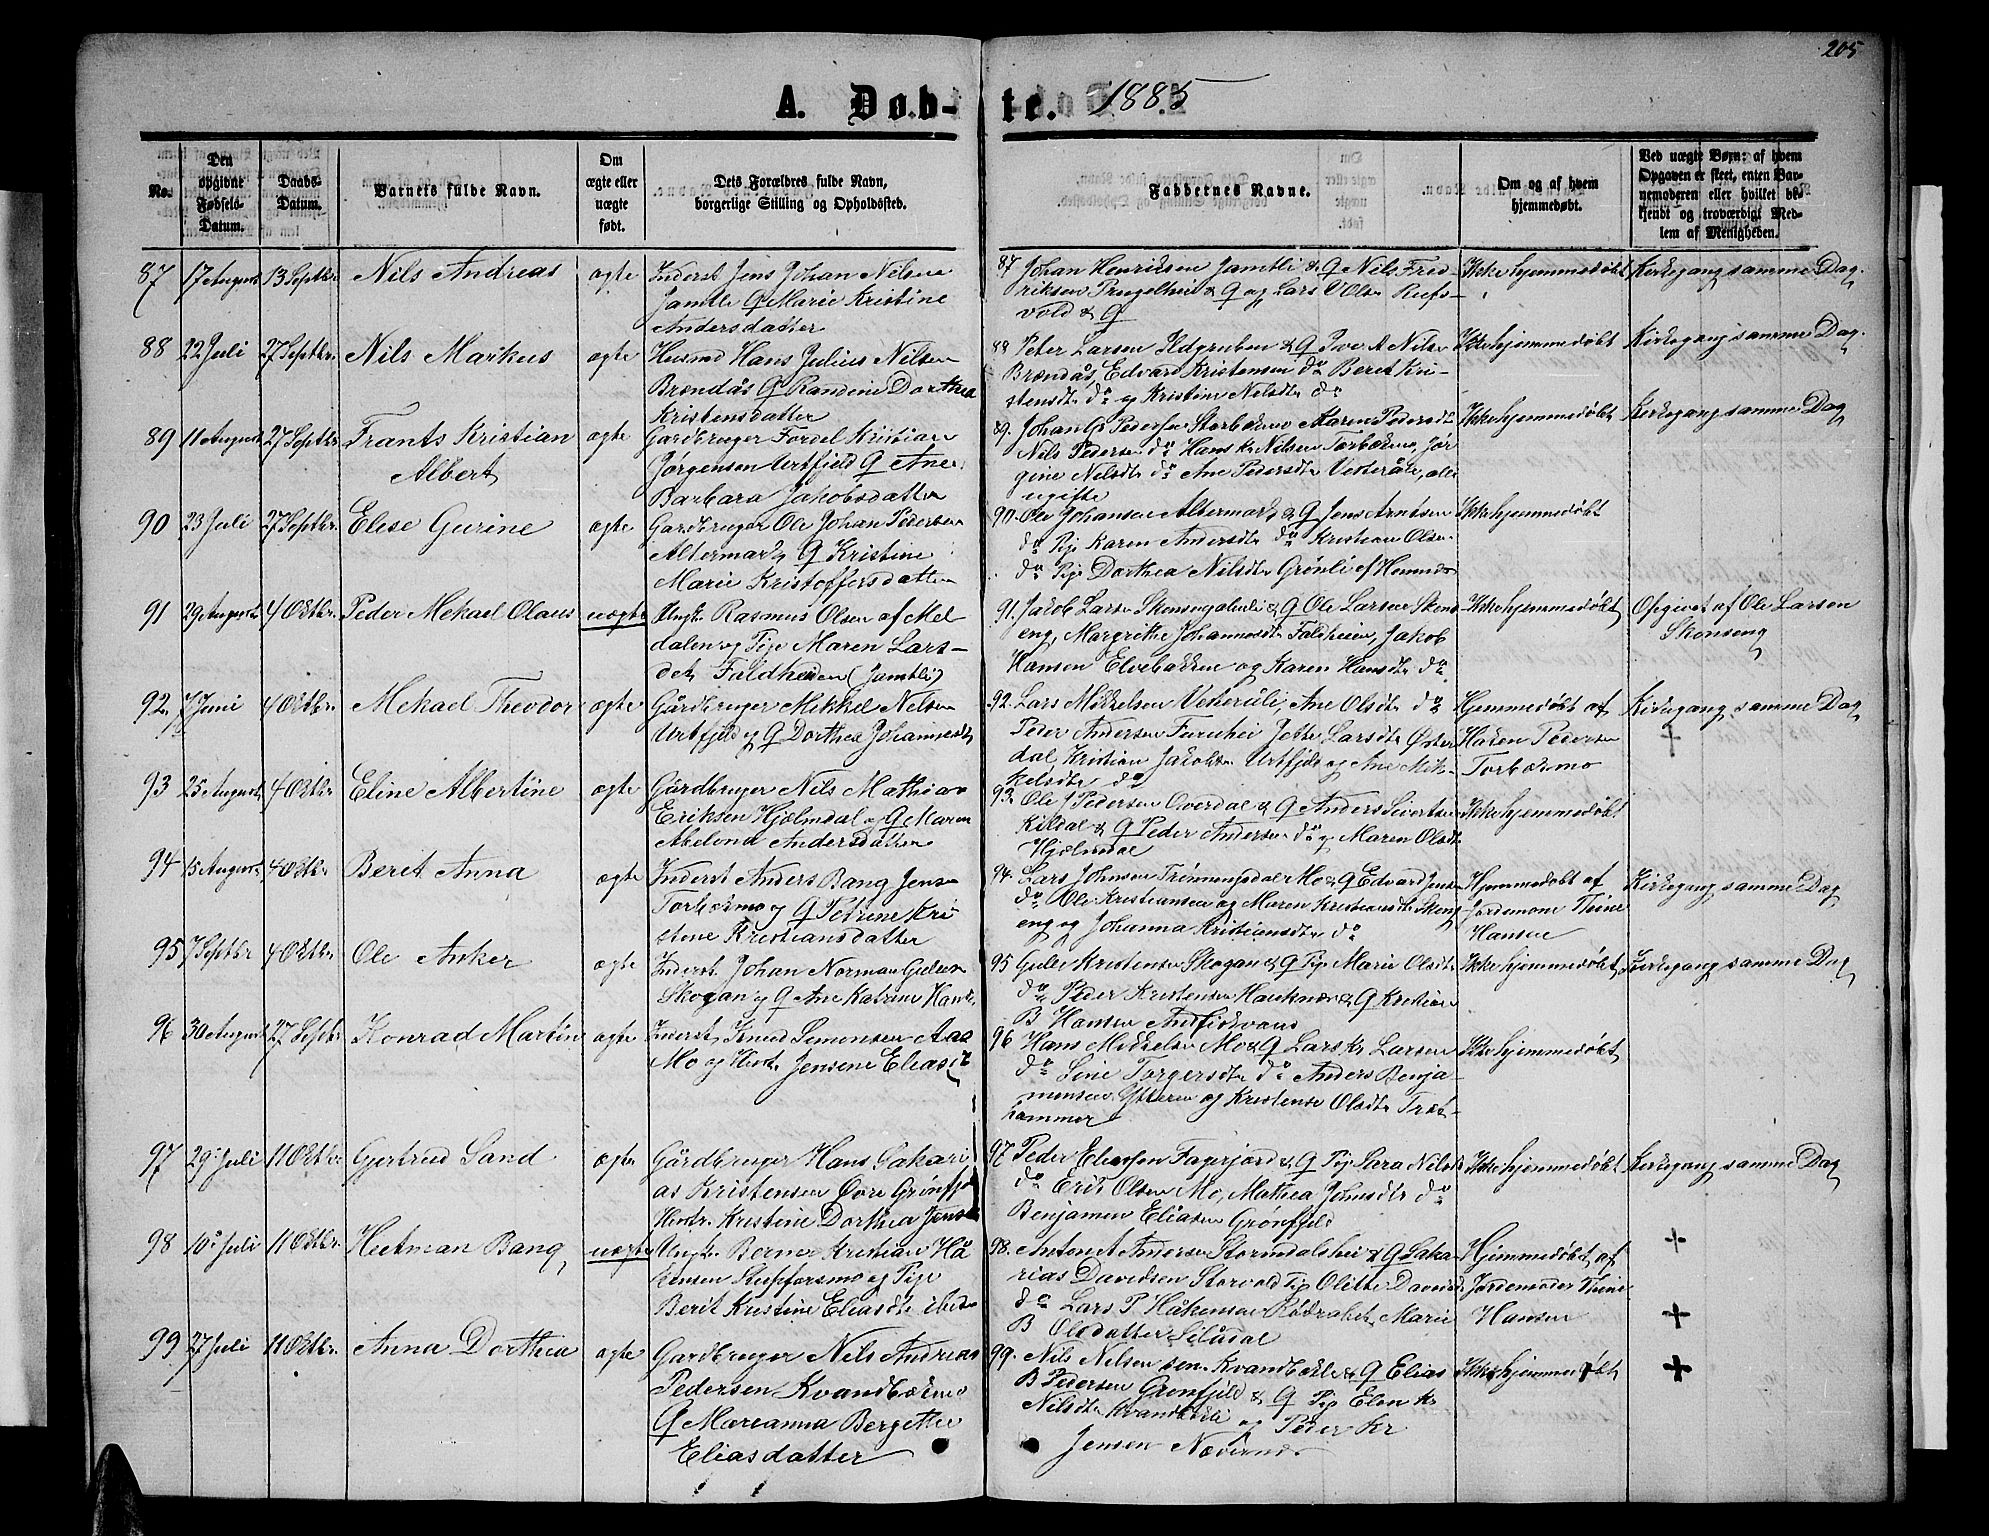 205
A. Døb-te. 1885
No.
Den opgivne Fødsels-Datum.
Daabs-Datum.
Barnets fulde Navn.
Om ægte eller uægte født.
Dets Forældres fulde Navn, borgerlige Stilling og Opholdssted.
Faddernes Navne.
Om og af hvem hjemmedøbt.
Ved uægte Børn: af hvem Opgaven er skeet, enten Barnemoderen eller hvilket bekjendt og troværdigt Medlem af Menigheden.
87 17 August 13 Septbr. Nils Andreas ægte
Inderst Jens Johan Nilsen
Jamtli & Marie Kristine
Andersdatter
87 Johan Henriksen Jamtli & G Nils Fred-
riksen & G og Lars Olsen Rufs-
vold & G
Ikke hjemmedøbt
Kirkegang samme Dag.
88 22 Juli 27 Septbr. Nils Markus ægte
Husmd Hans Julius Nilsen
Brændås G Randine Dorthea
Kristensdatter
88 Peter Larsen Ildgruben & G Iver A Nilsen
Brændås, Edvard Kristensen do Beret Kri-
stensdtr do og Kristine Nilsdtr do
Ikke hjemmedøbt
Kirkegang samme Dag.
89 11 August 27 Septbr. Frants Kristian
Albert
ægte
Gardbruger Fordel Kristian
Jørgensen Urtfjeld G Ane
Barbara Jakobsdatter
89. Johan G Pedersen Storbækmo Maren Pedersdtr
Nils Pedersen do Hans Kr Nilsen Torbækmo, Jør
gine Nilsdtr do Ane Pedersdtr Vesteråli, alle
ugifte
Ikke hjemmedøbt
Kirkegang samme Dag
90 23 Juli 27 Septbr. Elise Gurine ægte
Gardbruger Ole Johan Pedersen
Altermark G Kristine
Marie Kristoffersdatter
90. Ole Johansen Altermark & G Jens Arntsen
do Pige Karen Andersdtr do Kristian Olsen
do Pige Dorthea Nilsdtr Grønli af Hemnæs
Ikke hjemmedøbt
91 29 August 4 Oktbr. Peder Mekael Olaus uægte
Ungk. Rasmus Olsen af Mel
dalen og Pige Maren Lars-
dtr Faldheien (Jamtli)
91. Jakob Larsen & G Ole Larsen Skons
eng, Margrithe Johannesdtr Faldheien, Jakob
Hansen Elvebakken og Karen Hansdtr do
Ikke hjemmedøbt
Opgivet af Ole Larsen
Skonseng
92. 7 Juni 4 Oktbr. Mekael Theodor ægte
Gårdbruger Mikkel Nilsen
Urtfjeld og G Dorthea Johannesdtr
92. Lars Mikkelsen Veteråli, Ane Olsdtr do
Peder Andersen Furuhei Jette Larsdtr Øster
dal, Kristian Jakobsen Urtfjeld og Ane Mik-
kelsdtr do
Hjemmedøbt af
Haken Pedersen
Torbækmo
Kirkegang samme Dag
+
93 25 August 4 Oktbr. Eline Albertine ægte
Gårdbruger Nils Mathias
Eriksen Hjælmdal og G Maren
Abelona Andersdatter
93. Ole J Pedersen Overdal & G Anders Sivertsen
Kildal & G Peder Andersen do og Maren Olsdtr
Hjælmdal
Ikke hjemmedøbt
94 15 August 4 Oktbr. Berit Anna ægte
Inderst Anders Bang Jensen
Torbækmo og G Petrine Kri
stine Kristiansdatter
94. Lars Johnsen Mo & G Edvard Jensen
do Ole Kristiansen og Maren Kristiansdtr Skons
eng og Johanna Kristiansdtr do
Hjemmedøbt af
Jordemone Thrine
Hansen
Kirkegang samme Dag
95 7 Septbr 4 Oktbr. Ole Anker ægte
Inderst Johan Norman Gulesen
Skogan og G Ane Katrine Hansdtr
95 Gule Kristensen Skogan & G Pige Marie Olsdtr
do Peder Kristensen Hauknæs & G Kristian
B Hansen Andfiskvand
Ikke hjemmedøbt
Kirkegang samme Dag
96 30 August 27 Septbr Konrad Martin ægte
Inderst Knud Simonsen Aaa
Mo og Hustr. Jensine Eliasdtr
96 Hans Mikkelsen Mo & G Lars Kr Larsen
do Sine Torgersdtr do Anders Benja-
mensen Ytteren og Kristense Olsdtr Træ-
hammer
Ikke hjemmedøbt
97 29 Juli 11 Oktbr. Gjertrud Sand ægte
Gårdbruger Hans Sakari
as Kristensen Øvre Grønfje
Hustr. Kristine Dorthea Jensdtr
97 Peder Eliassen Fagerjord & G Pige Sara Nilsdtr
do Erik Olsen Mo, Mathea Johnsdtr do
Benjamin Eliasen Grønfjeld
Ikke hjemmedøbt
Kirkegang samme Dag
98 10 Juli 11 Oktbr. Heitman Bang uægte
Ungk. Berner Kristian Hå
kensen Stupforsmo og Pige
Berit Kristine Eliasdtr ibid
98. Anton A Andersen Stormdalshei & G Saka
rias Davidsen Storvold Pige Olette Davidsd
do Lars P Håkensen Rødvatnet, Marie
B Olsdatter
Hjemmedøbt af
Jordemoder Thrine
Hansen
+
+
99 27 Juli 11 Oktbr. Anna Dorthea ægte
Gardbruger Nils Andreas
Pedersen Kvandbækmo
G Mareanna Bergette
Eliasdatter
99. Nils Nilsen sen. Kvandbækli & G Elias
B Pedersen Grønfjeld & G Pige Elen Kr
Nilsdtr Kvandbækli og Peder Kr
Jensen Nævernes
Ikke hjemmedøbt
+